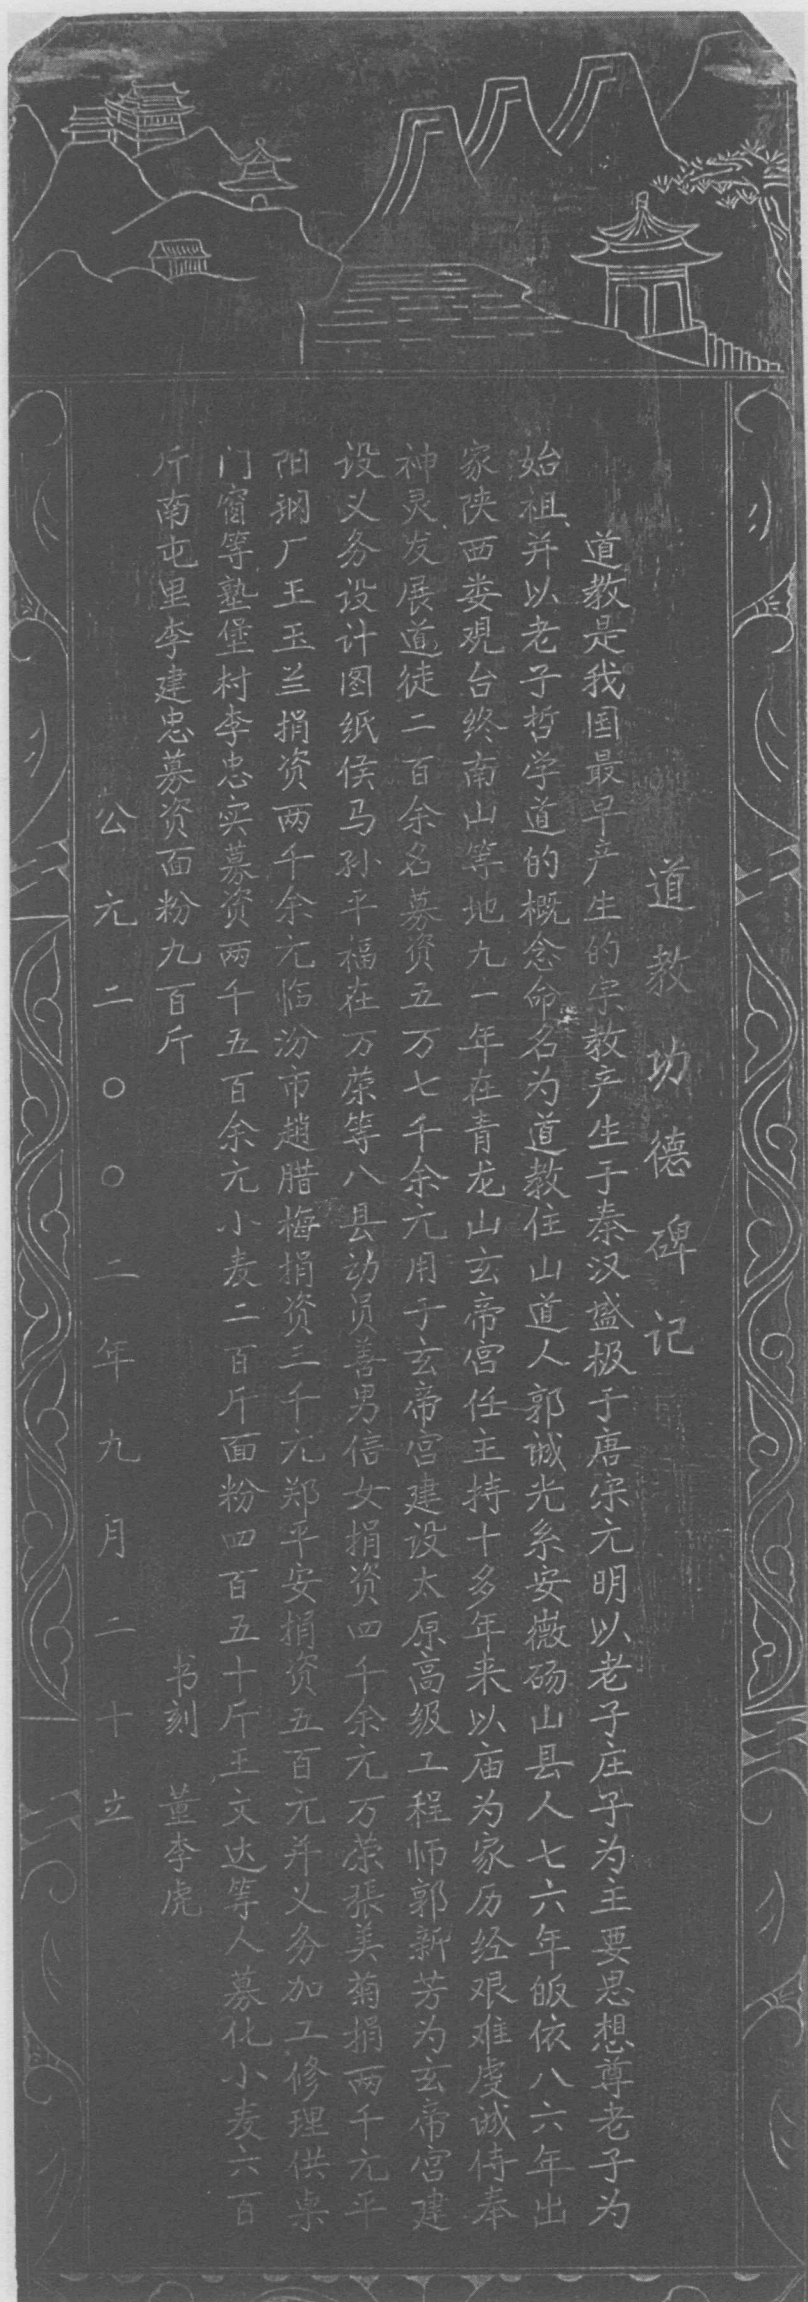 道教功德碑记
道教是我国最早产生的宗教产生于秦汉盛极于唐宋元明以老子庄子为主要思想尊老子为
始祖并以老子哲学道的概念命名为道教住山道人郭诚光系安徽砀山县人七六年皈依八六年出
家陕西娄观台终南山等地九一年在青龙山玄帝宫任主持十多年来以庙为家历经艰难虔诚侍奉
神灵发展道徒二百余名募资五万七千余元用于玄帝宫建设太原高级工程师郭新芳为玄帝宫建
设义务设计图纸侯马孙平福在万荣等八县动员善男信女捐资四千余元万荣張美菊捐两千元平
阳钢厂王玉兰捐资两千余元临汾市趙腊梅捐资三千元郑平安捐资五百元并义务加工修理供桌
门窗等塾堡村李忠实募资两千五百余元小麦二百斤面粉四百五十斤王文达等人募化小麦六百
斤南屯里李建忠募资面粉九百斤
书刻 董李虎
公元二〇〇二年九月二十立